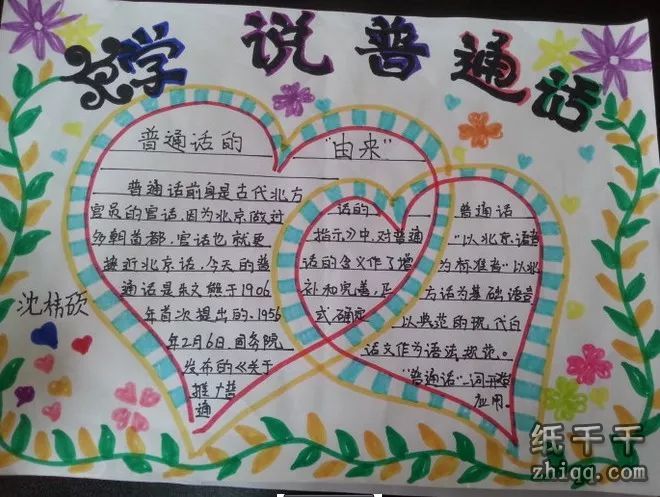 学说普通话
普通话的
"由来"
普通话前身是古代北方
官员的官话,因为北京做过
多朝首都,官话也就更
接近北京话,今天的普
通话是朱文熊于1906
年首次提出的.1956
年2月6日,国务院
发布的《关于
推广普
通
话的
指示》中,对普通
话的含义作了增
补和完善,正
式确定
普通话
"以北京语音
为标准音"以北
方话为基础语言
以典范的现代白
话文作为语法规范。
"普通话"一词开始
应用。
沈梼硕
纸千千
zhiqq.com